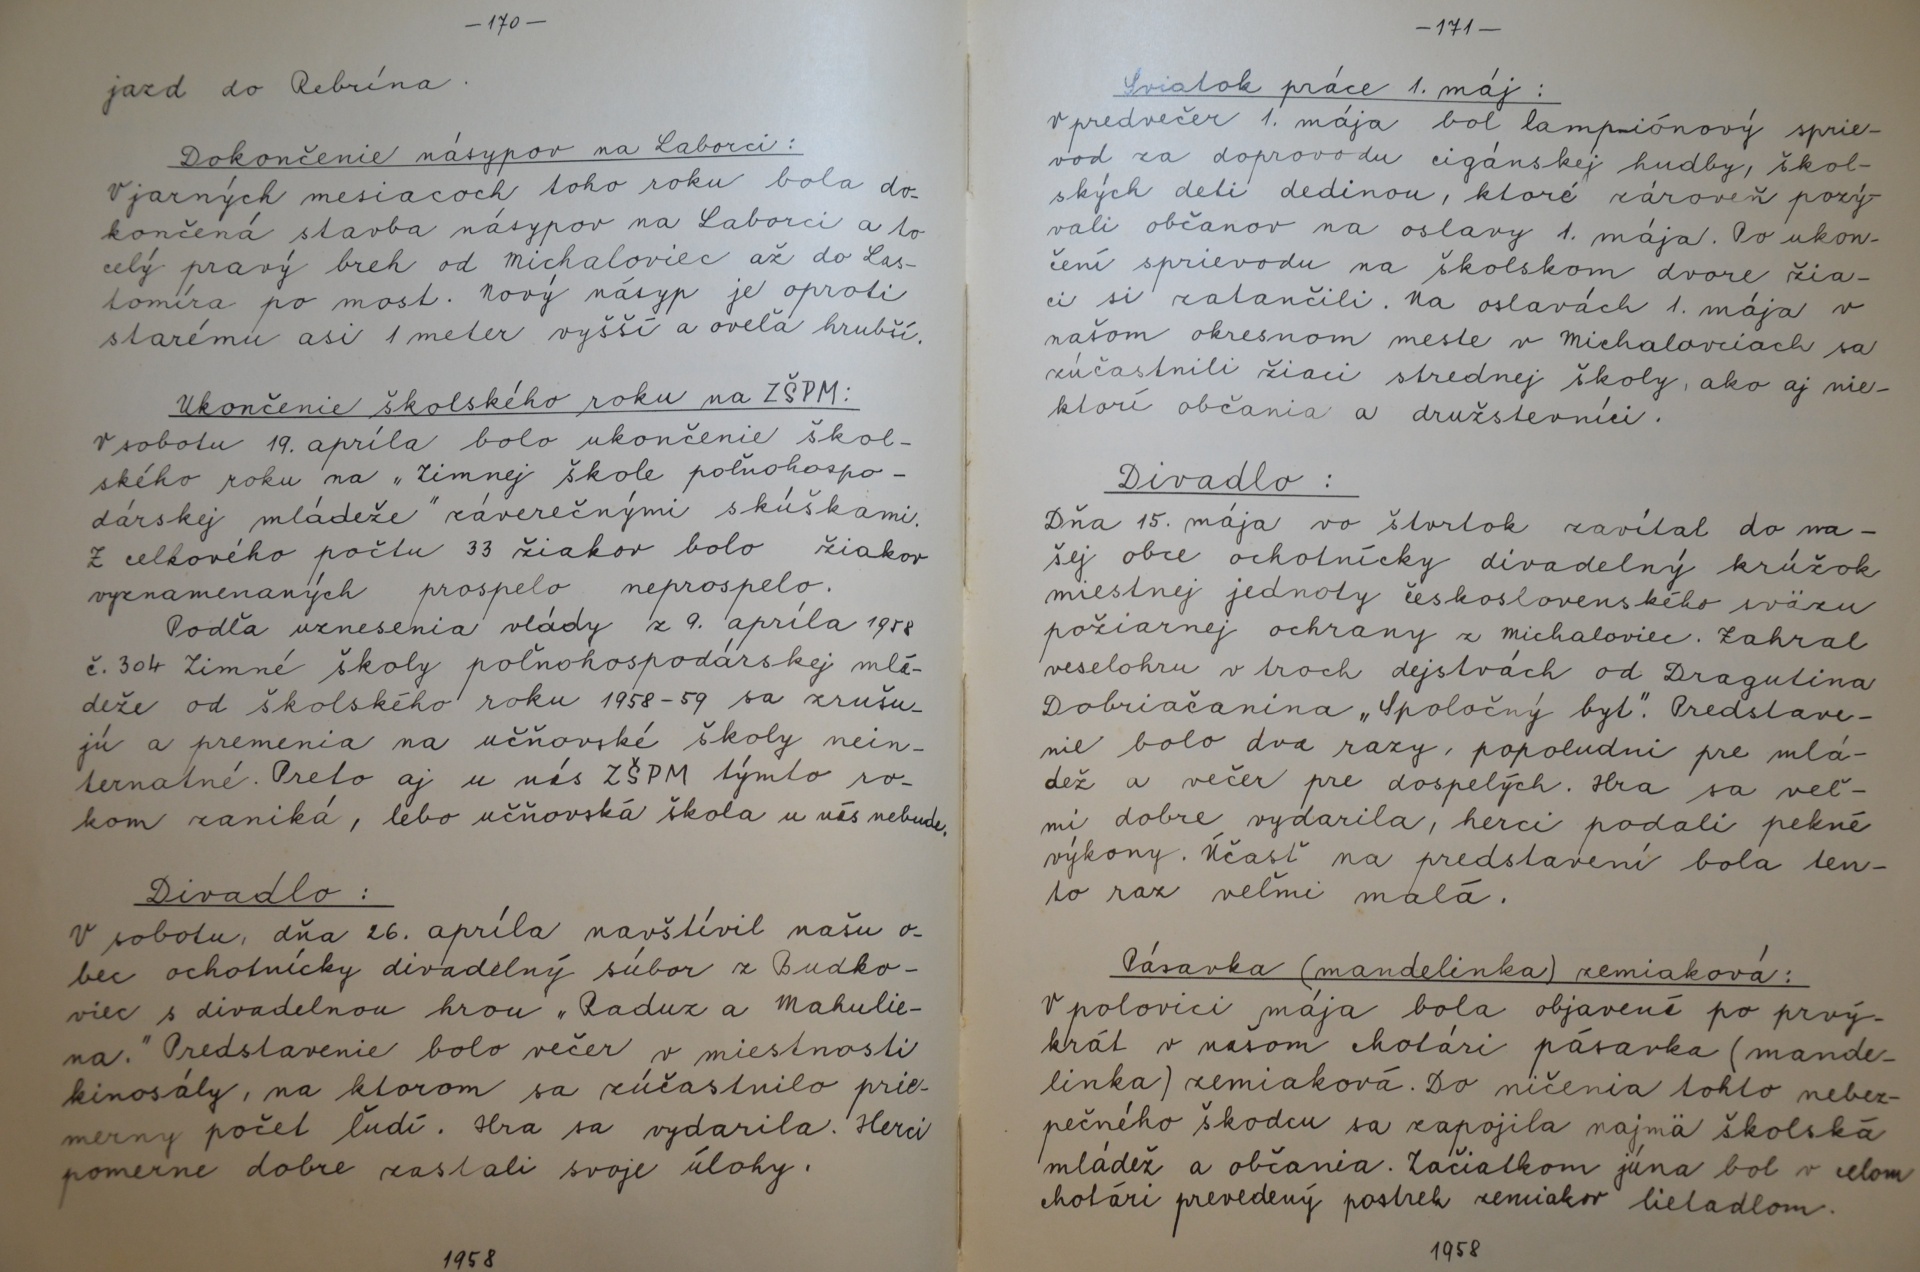 — 170 —
jazd do Rebrína.
Dokončenie násypov na Laborci:
V jarných mesiacoch toho roku bola do-
končená stavba násypov na Laborci a to
celý pravý breh od Michaloviec až do Las-
tomíra po most. Nový násyp je oproti
starému asi 1 meter vyšší a oveľa hrubší.
Ukončenie školského roku na ZŠPM:
V sobotu 19. apríla bolo ukončenie škol-
ského roku na „Zimnej škole poľnohospo-
dárskej mládeže" záverečnými skúškami.
Z celkového počtu 33 žiakov bolo žiakov
vyznamenaných prospelo neprospelo.
Podľa uznesenia vlády z 9. apríla 1958
č. 304 Zimné školy poľnohospodárskej mlá-
deže od školského roku 1958-59 sa zrušu-
jú a premenia na učňovské školy nein-
ternatné. Preto aj u nás ZŠPM týmto ro-
kom zaniká, lebo učňovská škola u nás nebude.
Divadlo:
V sobotu, dňa 26. apríla navštívil našu o-
bec ochotnícky divadelný súbor z Budko-
viec s divadelnou hrou „Raduz a Mahulie-
na." Predstavenie bolo večer v miestnosti
kinosály, na ktorom sa zúčastnilo prie-
merny počet ľudí. Hra sa vydarila. Herci
pomerne dobre zastali svoje úlohy.
1958
— 171 —
Sviatok práce 1. máj:
V predvečer 1. mája bol lampiónový sprie-
vod za doprovodu cigánskej hudby, škol-
ských deti dedinou, ktoré zároveň pozý-
vali občanov na oslavy 1. mája. Po ukon-
čení sprievodu na školskom dvore žia-
ci si zatančili. Na oslavách 1. mája v
našom okresnom meste v Michalovciach sa
zúčastnili žiaci strednej školy, ako aj nie-
ktorí občania a družstevníci.
Divadlo:
Dňa 15. mája vo štvrtok zavítal do na-
šej obce ochotnícky divadelný krúžok
miestnej jednoty československého sväzu
požiarnej ochrany z Michaloviec. Zahral
veselohru v troch dejstvách od Dragutina
Dobriačanina „Spoločný byt". Predstave-
nie bolo dva razy, popoludní pre mlá-
dež a večer pre dospelých. Hra sa veľ-
mi dobre vydarila, herci podali pekné
výkony. Účasť na predstavení bola ten-
to raz veľmi malá.
Pásavka (mandelinka) zemiaková:
V polovici mája bola objavené po prvý-
krát v našom chotári pásavka (mande-
linka) zemiaková. Do ničenia tohto nebez-
pečného škodcu sa zapojila najmä školská
mládež a občania. Začiatkom júna bol v celom
chotári prevedený postrek zemiakov lietadlom.
1958